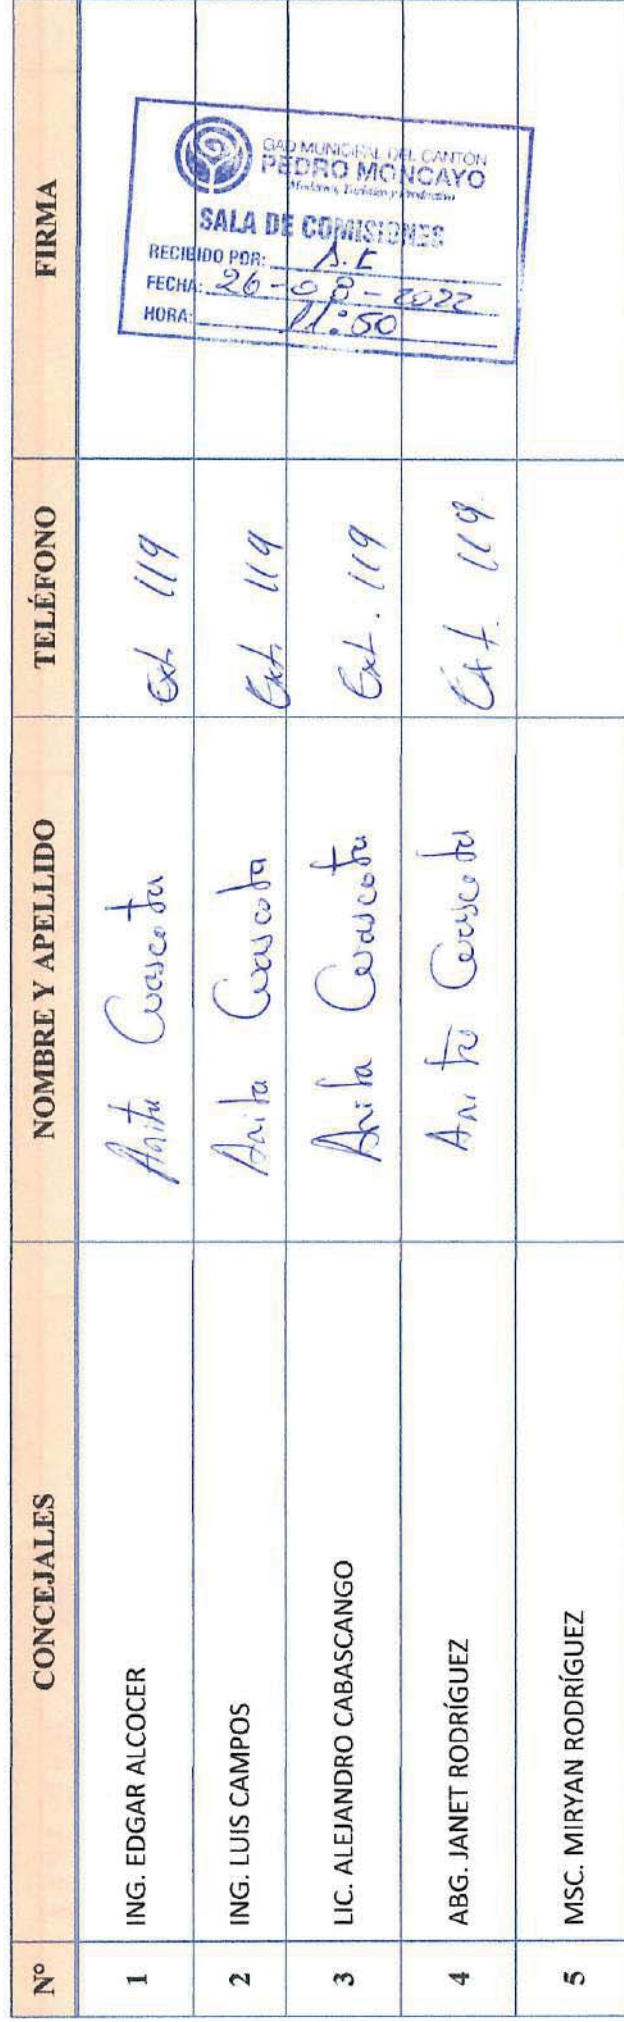 Nº CONCEJALES NOMBRE Y APELLIDO TELÉFONO FIRMA
1 ING. EDGAR ALCOCER Anita Cuascota Ext. 119
2 ING. LUIS CAMPOS Anita Cuascota Ext. 119
3 LIC. ALEJANDRO CABASCANGO Anita Cuascota Ext. 119
4 ABG. JANET RODRÍGUEZ Anita Cuascota Ext. 119
5 MSC. MIRYAN RODRÍGUEZ
GAD MUNICIPAL DEL CANTÓN
PEDRO MONCAYO
Moderno, Turístico y Productivo
SALA DE COMISIONES
RECIBIDO POR:
FECHA: 26-08-2022
HORA: 11:50